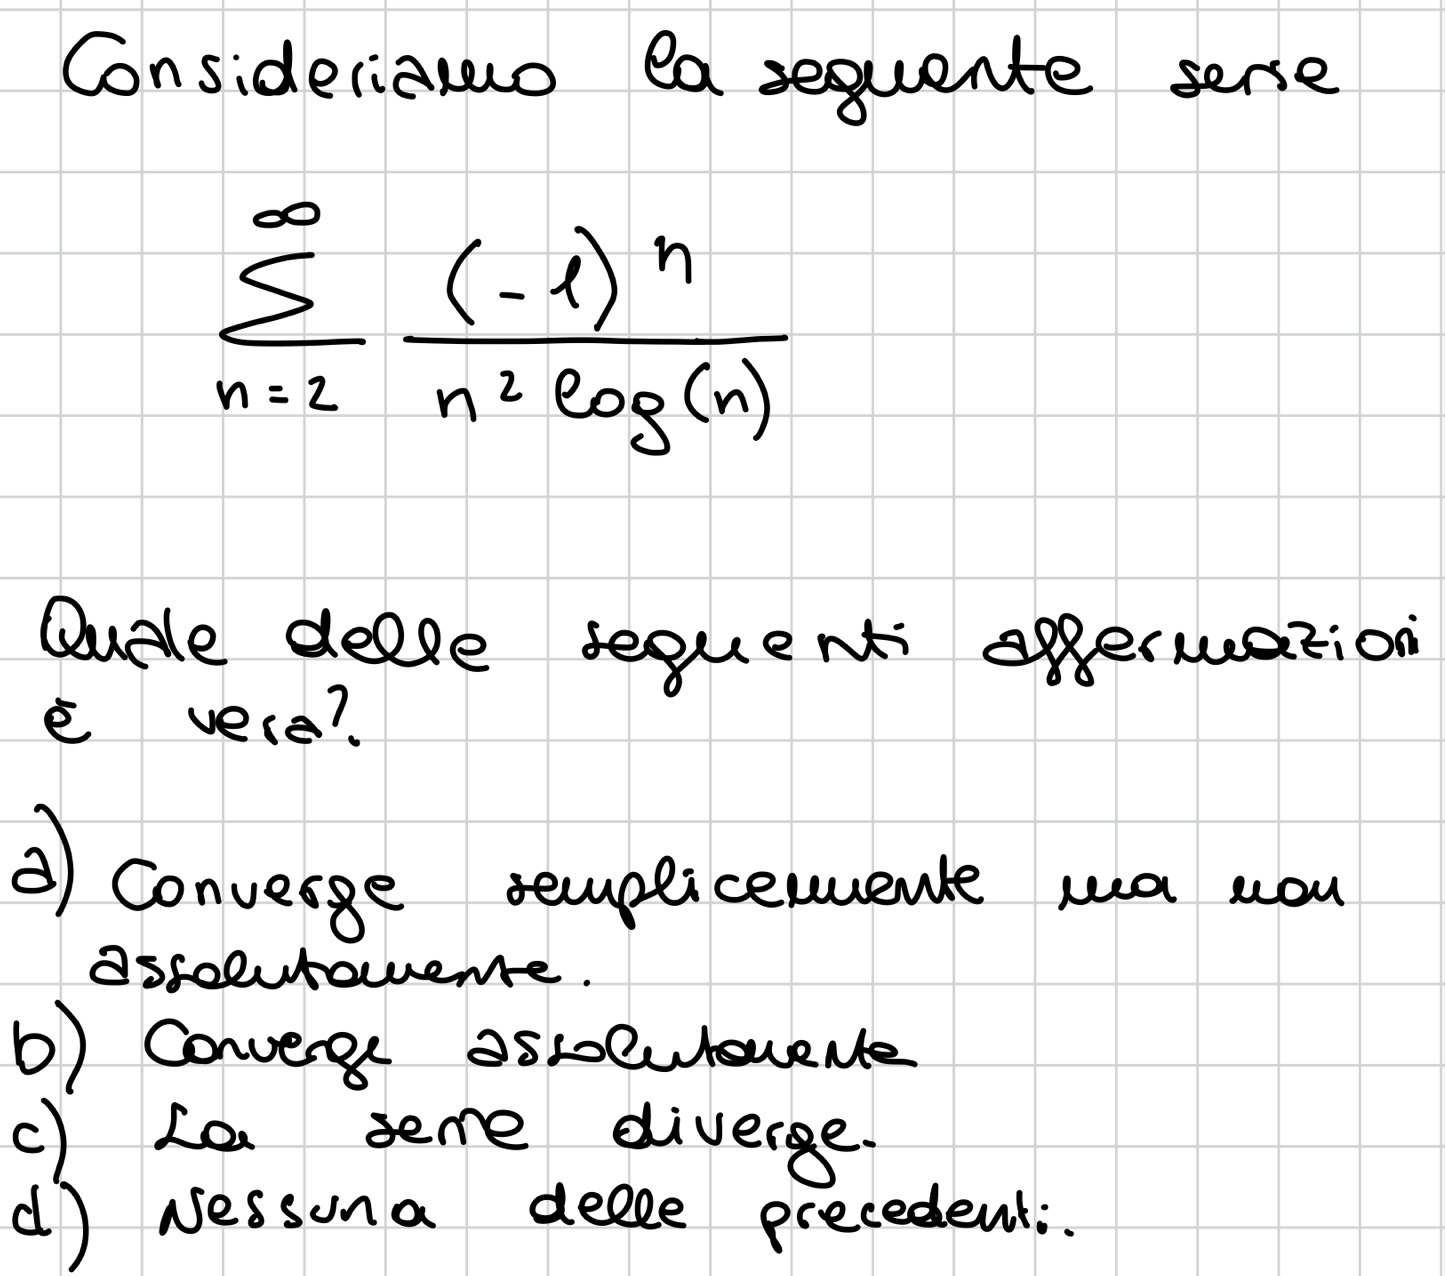 Consideriamo la seguente serie
∞
∑ (-1)^n / n² log(n)
n=2
Quale delle seguenti affermazioni
è vera?
a) Converge semplicemente ma non
assolutamente.
b) Converge assolutamente
c) La serie diverge.
d) Nessuna delle precedenti.